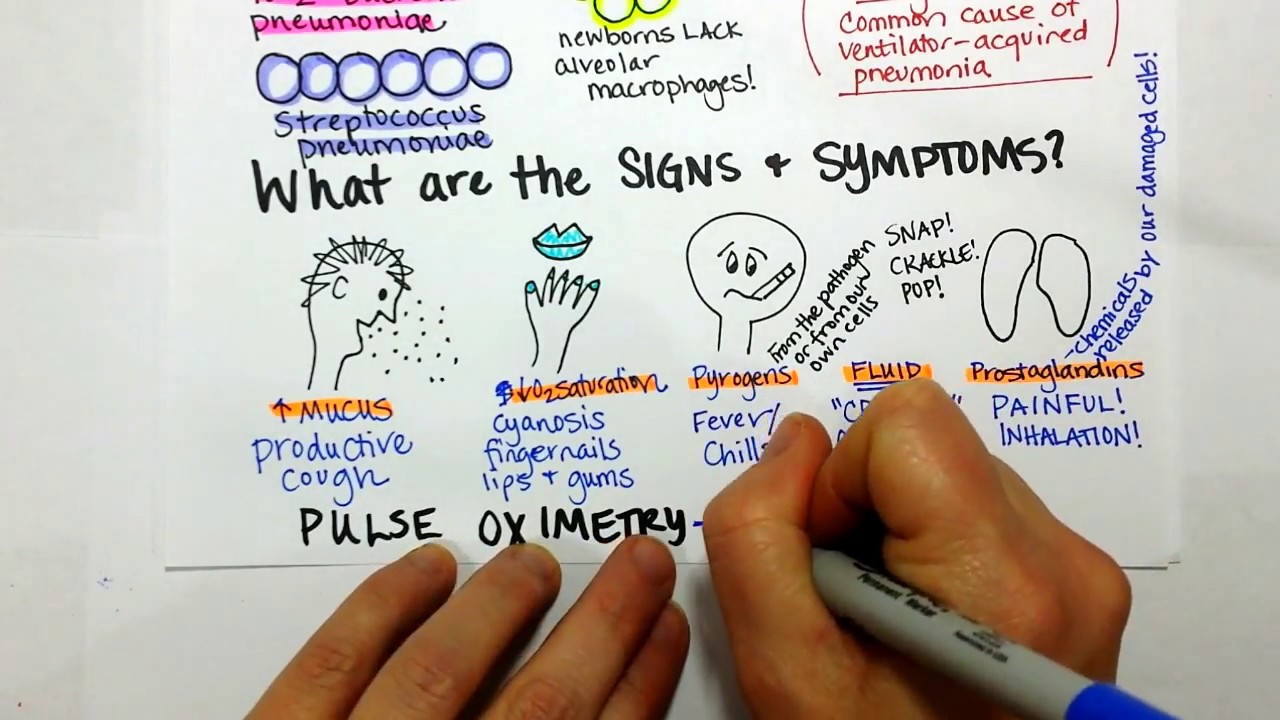 pneumoniae
Streptococcus
pneumoniae
newborns LACK
alveolar
macrophages!
Common cause of
ventilator-acquired
pneumonia
What are the SIGNS + SYMPTOMS?
↑ MUCUS
productive
cough
↓O2 saturation
cyanosis
fingernails
lips + gums
Pyrogens
Fever/
Chills
from the pathogen
or from our
own cells
SNAP!
CRACKLE!
POP!
FLUID
Prostaglandins
-chemicals
released by our damaged cells!
PAINFUL!
INHALATION!
PULSE OXIMETRY-
Permanent Marker